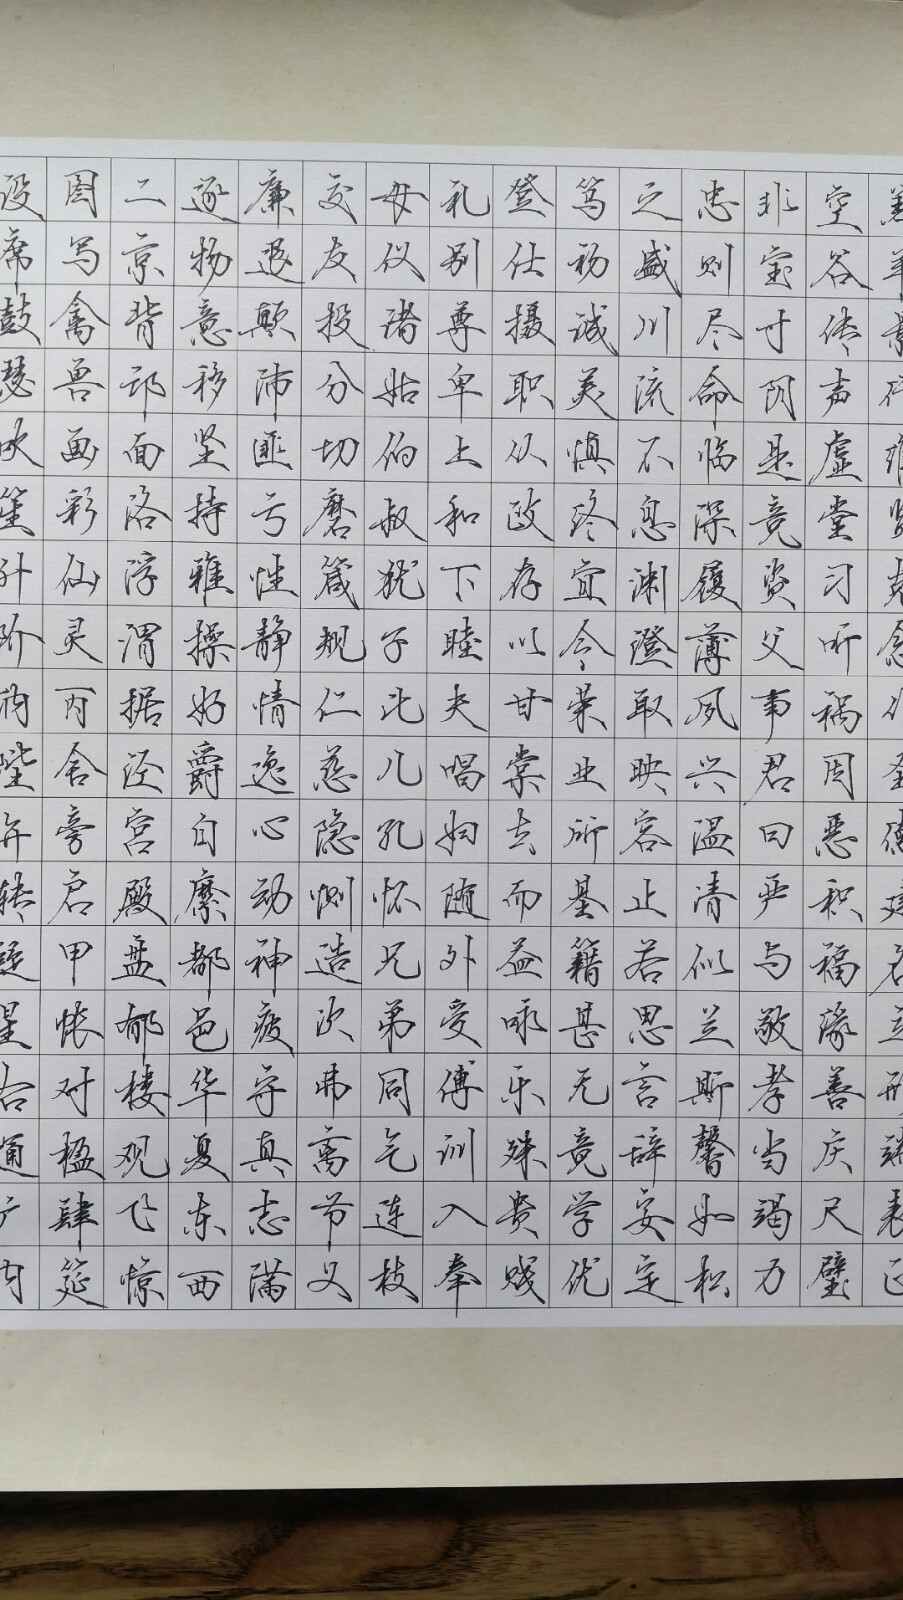 羔羊景行维贤克念作圣德建名立形端表正
空谷传声虚堂习听祸因恶积福缘善庆尺璧
非宝寸阴是竞资父事君曰严与敬孝当竭力
忠则尽命临深履薄夙兴温清似兰斯馨如松
之盛川流不息渊澄取映容止若思言辞安定
笃初诚美慎终宜令荣业所基籍甚无竟学优
登仕摄职从政存以甘棠去而益咏乐殊贵贱
礼别尊卑上和下睦夫唱妇随外受傅训入奉
母仪诸姑伯叔犹子比儿孔怀兄弟同气连枝
交友投分切磨箴规仁慈隐恻造次弗离节义
廉退颠沛匪亏性静情逸心动神疲守真志满
逐物意移坚持雅操好爵自縻都邑华夏东西
二京背邙面洛浮渭据泾宫殿盘郁楼观飞惊
图写禽兽画彩仙灵丙舍旁启甲帐对楹肆筵
设席鼓瑟吹笙升阶纳陛弁转疑星右通广内